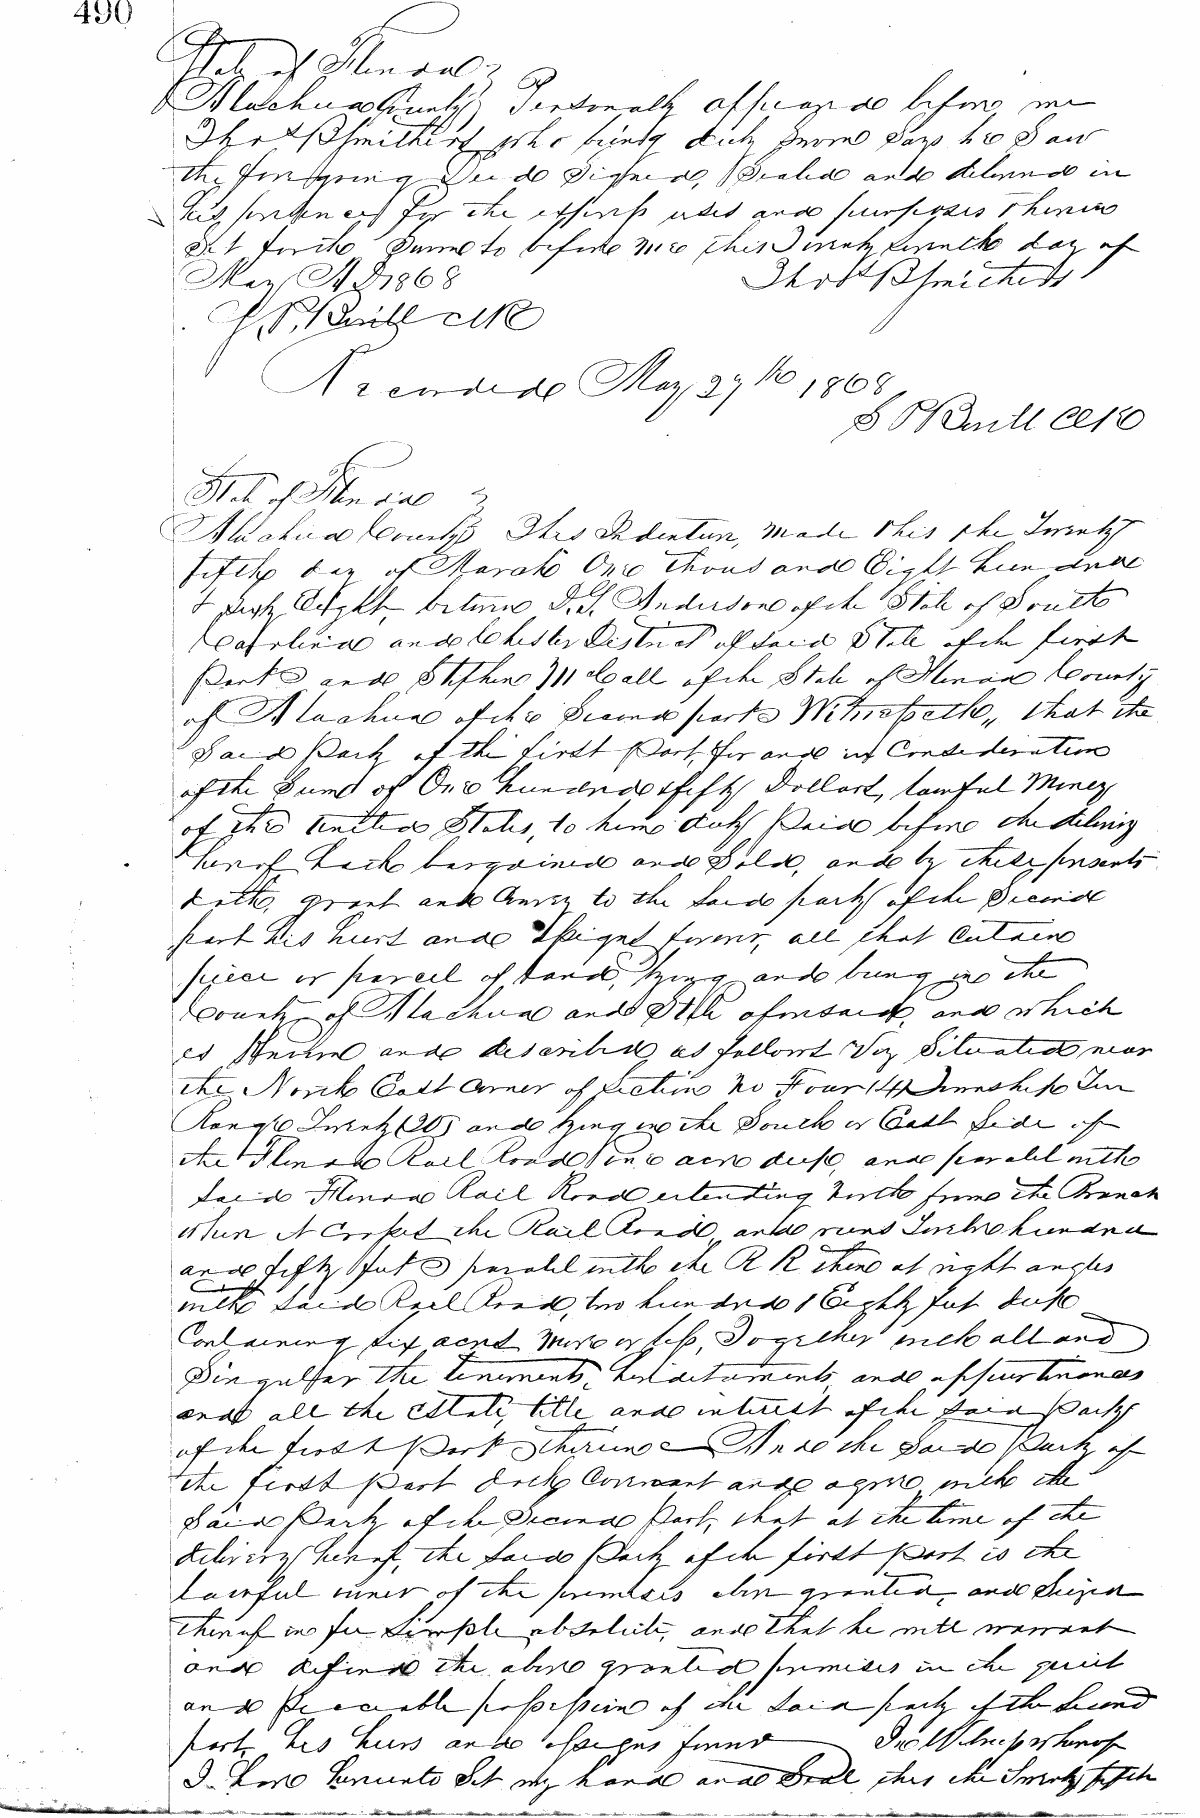 490
State of Florida
Alachua County Personally appeared before me
Thos B Smithers who being duly sworn Says he Saw
the foregoing Deed Signed, Sealed and delivered in
his presence for the express uses and purposes therein
Set forth Sworn to before me this Twenty Seventh day of
May A D 1868 Thos B Smithers
Clk
Recorded May 27th 1868
Clk
State of Florida
Alachua County This Indenture, made this the Twenty
fifth day of March One thousand Eight hundred
& Sixty Eight, between Anderson of the State of South
Carolina and Chester District of Said State of the first
Part and Stephen McCall of the State of Florida County
of Alachua of the Second part Witnesseth, that the
Said Party of the first Part, for and in Consideration
of the Sum of One hundred & fifty Dollars, lawful Money
of the United States, to him duly Paid before the delivery
hereof hath bargained and Sold, and by these presents
doth, grant and Convey to the Said party of the Second
part his heirs and assigns forever, all that Certain
piece or parcel of Land, lying and being in the
County of Alachua and State aforesaid, and which
is Known and described as follows Viz Situated near
the North East Corner of Section No Four (4) Township Ten
Range Twenty (20) and lying on the South or East Side of
the Florida Rail Road, one acre deep, and paralel with
Said Florida Rail Road extending North from the Branch
when it Crosses the Rail Road, and runs Twelve hundred
and fifty feet paralel with the R R then at right angles
with Said Rail Road, two hundred & Eighty feet deep
Containing Six acres more or less, Together with all and
Singular the tenements, hereditaments, and appurtenances
and all the estate, title and interest of the Said Party
of the first Part therein And the Said Party of
the first Part doth Covenant and agree with the
Said Party of the Second Part, that at the time of the
delivery hereof, the Said Party of the first Part is the
lawful owner of the premises above granted, and Seized
thereof in fee Simple absolute, and that he will warrant
and defend the above granted premises in the quiet
and Peaceable possession of the Said party of the Second
part, his heirs and assigns forever In Witness whereof
I have hereunto Set my hand and Seal this the Twenty fifth